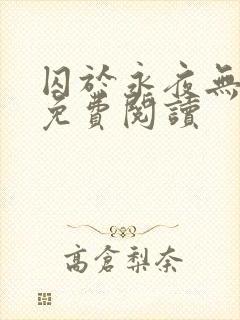 囚於永夜無
免費閱讀
高倉梨奈